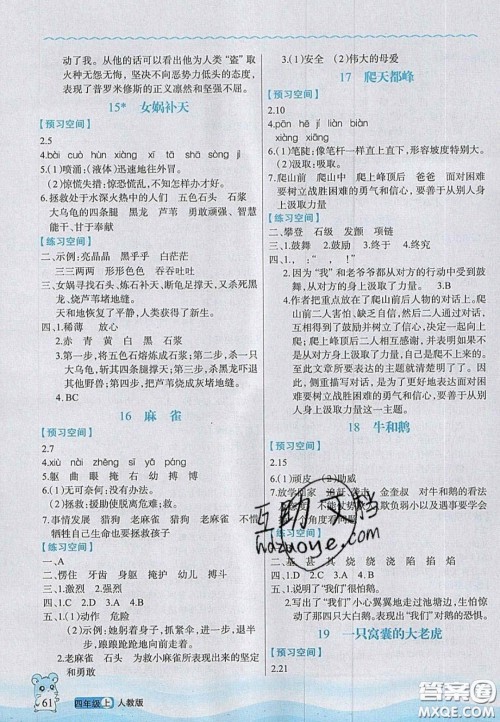 动了我。从他的话可以看出他为人类“盗”取
火种无怨无悔、坚决不向恶势力低头的态度，
表现了普罗米修斯的正义凛然和英勇。
15* 女娲补天
【预习空间】
2.5
4.bǎi cuò hùn xiáng xī tā shā shǒng xiè
5.(1)喷涌:(液体)迅速地往外冒。
(2)惊慌失措:惊恐慌乱,不知怎样办才好。
6.拯救处于水深火热中的人们 五色石头 石浆
大乌龟的四条腿 黑龙 芦苇 勇敢顽强、智慧
能干、甘于奉献
【练习空间】
二、示例:亮晶晶 黑乎乎 白茫茫
三三两两 形形色色 吞吞吐吐
三、女娲寻找五色石、炼石补天、斩龟足撑天、又杀黑
龙、烧芦苇堵地缝。
天和地恢复了平静,人类获得了新生。
四、1.稀薄 放心
2.赤 青 黄 白 黑 石浆
3.第一步,将五色石熔炼成石浆;第二步,杀一只
大乌龟,斩龟足支撑四极;第三步,杀死黑龙吓退
其他野兽;第四步,把芦苇烧成灰堵地缝。
4.BC
16 麻雀
【预习空间】
2.7
4.xiù nài zhēng sī yǎ páng
5.躯 曲 掩 庵 拒 幼 搏 博
6.(1)无可奈何:没有办法。
(2)拯救:援助使脱离危难;救。
7.事情发展 猎狗 老麻雀 猎狗 老麻雀无所畏惧,
牺牲自己生命也要拯救孩子
【练习空间】
一、A
二、愣住 牙齿 身躯 掩护 幼儿 搏斗
三、1.激烈 2.强烈
四、1.C 2.D 3.A 4.B
五、(1)动作
(2)示例:她躬着身子,抓紧伞,进一步,退三步,
踉踉跄跄地走来。
2.老麻雀 石头 为救小麻雀所表现出来的坚定
和勇敢
3.(1)安全 (2)伟大的母爱
17 爬天都峰
【预习空间】
2.10
4.pān hè jǐ liàn biàn
6.(1)笔陡:像毛笔杆一样直上直下,形容坡度特别大。
(2)汲取:吸取。
7.爬山前 爬山中 爬上峰顶后 爸爸 面对困难
要树立战胜困难的勇气和信心,要善于从别人身
上汲取力量
【练习空间】
二、攀登 石级 发颤 陡峭
三、1.鼓舞 2.鼓励 3.终于
四、1.,!。
2.因为“我”和老爷爷都从对方的行动中受到鼓
舞,从而有了爬山的勇气和信心,汲取了对方的
力量。
4.作者把重点放在了爬山前后人物的对话上。爬
山前二人害怕、缺乏信心,然后二人通过对话,
相互得到了鼓励和信心,树立了勇气,在爬上峰
顶后二人相互感谢,并表示是从对方身上汲取
了力量才能爬上来的,这样就把主题表达清楚
明白了。因此,侧重写对话能更好地突出面对
困难要树立战胜困难的勇气和信心,要善于从
别人身上汲取力量这一主题。
18 牛和鹅
【预习空间】
2.15
6.(1)顽皮 (2)助威
【练习空间】
四、1.D 2.C 3.A 4.B
五、1.说明了“我们”很怕鹅。
2.写出了“我们”小心翼翼地走过池塘边,生怕惊
动水里的大白鹅。表现出“我们”对鹅的恐惧。
19 一只窝囊的大老虎
【预习空间】
2.21
互助文档
hazuoye.com
61
四年级 上 人教版
答案圈
MXQE.COM